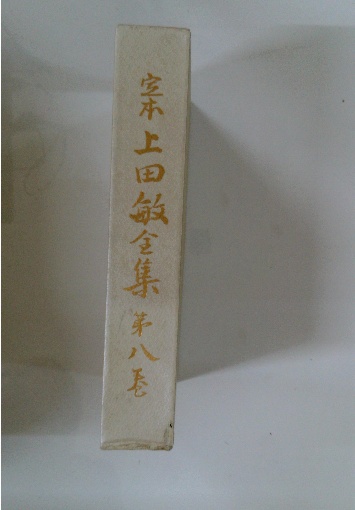 定本上田敏全集第八巻